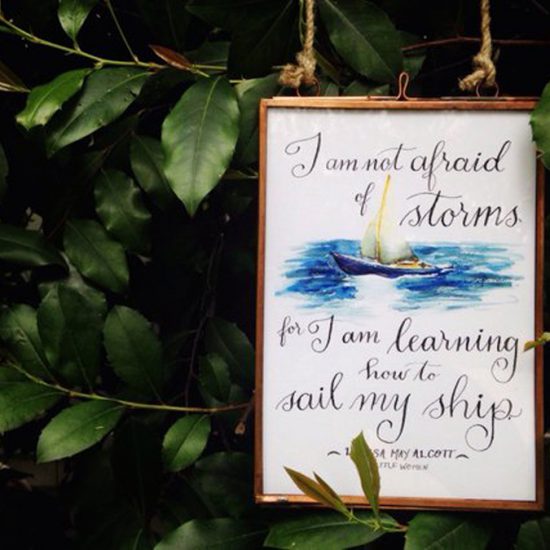 I am not afraid
of storms,
for I am learning
how to
sail my ship.
~ MAY ALCOTT ~
WOMEN